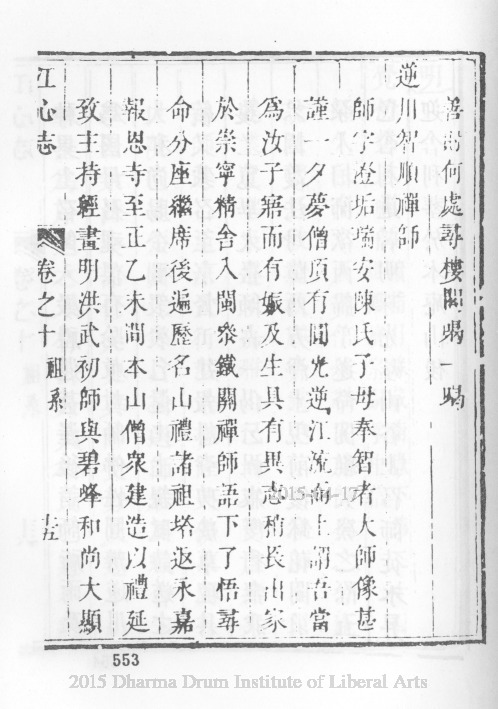 善尚何處尋樓閣喝　喝
逆川智順禪師
師字澄垢瑞安陳氏子母奉智者大師像甚
謹一夕夢僧頂有圓光逆江流而上謂吾當
為汝子寤而有娠及生具有異志稍長出家
於崇寧精舍入閩叅鐵關禪師語下了悟尋
命分座繼席後遍歷名山禮諸祖塔返永嘉
報恩寺至正乙未間本山僧衆建造以禮延
致主持經畫明洪武初師與碧峰和尚大顯
江心志
卷之十
祖系
十五
2015-04-17
553
2015 Dharma Drum Institute of Liberal Arts